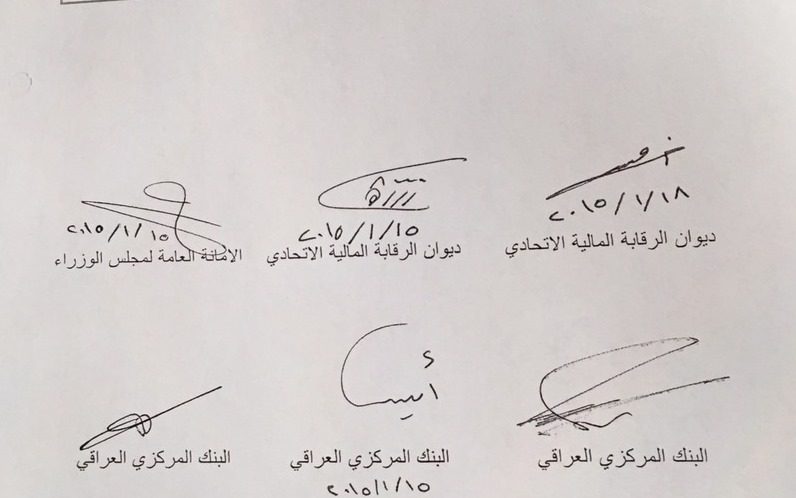 ٢٠١٥/١/١٨
ديوان الرقابة المالية الاتحادي
٢٠١٥/١/١٥
ديوان الرقابة المالية الاتحادي
٢٠١٥/١/١٥
الامانة العامة لمجلس الوزراء
البنك المركزي العراقي
البنك المركزي العراقي
٢٠١٥/١/١٥
البنك المركزي العراقي